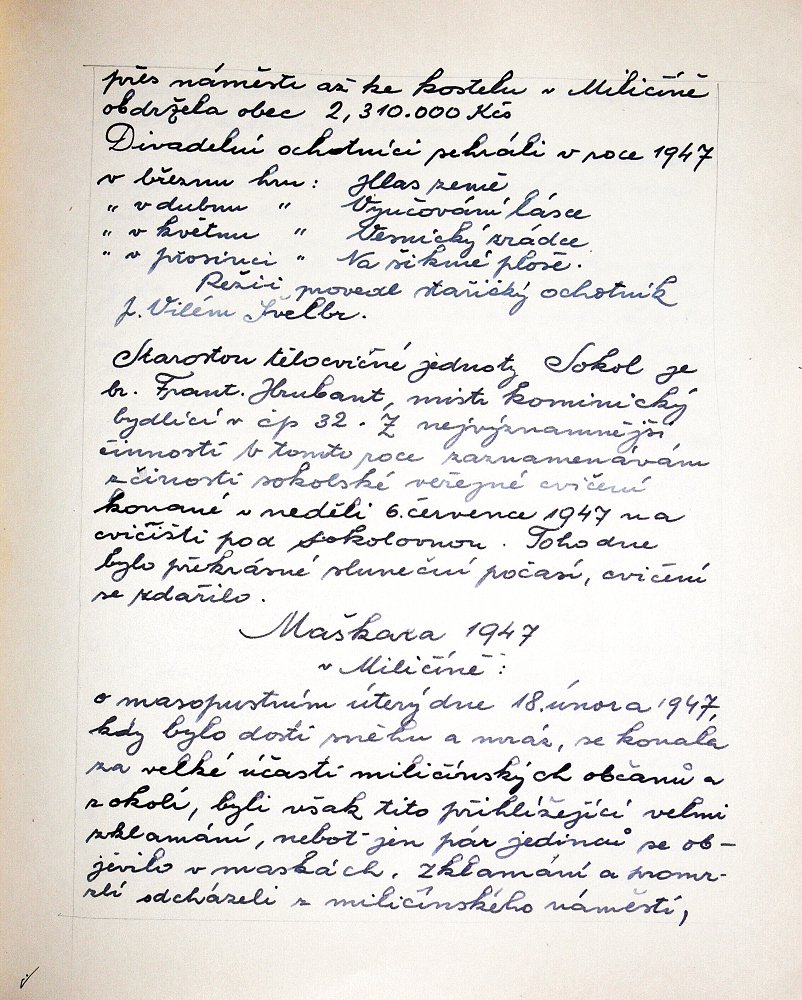 přes náměstí až ke kostelu v Miličíně
obdržela obec 2,310.000 Kčs
Divadelní ochotníci sehráli v roce 1947
v březnu hru: Hlas země
„ v dubnu „ Vyučování lásce
„ v květnu „ Vesnický zrádce
„ v prosinci „ Na šikmé ploše.
Režii provedl stařičký ochotník
p. Vilém Švelbr.
Starostou tělocvičné jednoty Sokol je
br. Frant. Hrubant, mistr kominický
bydlící v čp 32. Z nejvýznamnější
činností v tomto roce zaznamenávám
z činosti sokolské veřejné cvičení
konané v neděli 6. července 1947 na
cvičišti pod sokolovnou. Toho dne
bylo překrásné sluneční počasí, cvičení
se zdařilo.
Maškara 1947
v Miličíně:
o masopustním úterý dne 18. února 1947,
kdy bylo dosti sněhu a mráz, se konala
za velké účasti miličínských občanů a
z okolí, byli však tito přihlížející velmi
zklamáni, neboť jen pár jedinců se ob-
jevilo v maskách. Zklamáni a promr-
zlí odcházeli z miličínského náměstí,